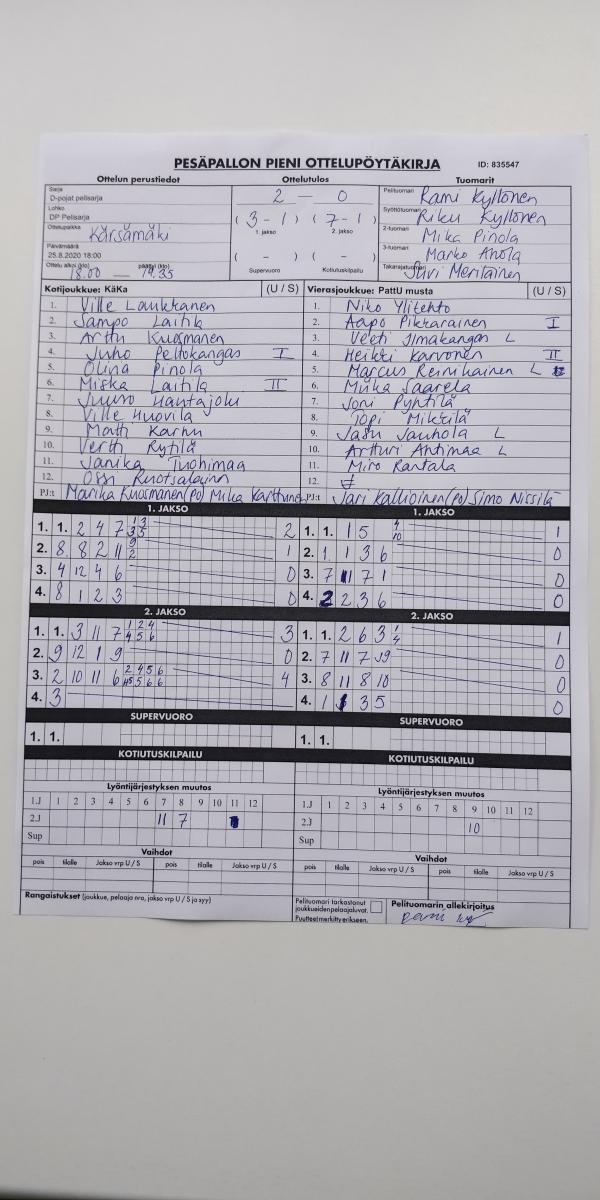 PESÄPALLON PIENI OTTELUPÖYTÄKIRJA ID: 835547
Ottelun perustiedot Ottelutulos Tuomarit
Sarja
D-pojat pelisarja
2 — 0
Pelituomari Rami Kyllönen
Lohko
DP Pelisarja
(3-1) (7-1)
1. jakso 2. jakso
Syöttötuomari Riku Kyllönen
Ottelupaikka Kärsämäki
2-tuomari Mika Pinola
Päivämäärä
25.8.2020 18:00
( - ) ( - )
3-tuomari Marko Ahola
Ottelu alkoi (klo) päättyi (klo)
18.00 — 19.35
Supervuoro Kotiutuskilpailu
Takarajatuomari Meriläinen
Kotijoukkue: KäKa (U / S) Vierasjoukkue: PattU musta (U / S)
1. Ville Laukkanen 1. Niko Ylitehto
2. Sampo Laitila 2. Aapo Pikkarainen I
3. Arttu Kuosmanen 3. Veeti Jimakangas L
4. Juho Peltokangas I 4. Heikki Karvonen II
5. Olina Pinola 5. Marcus Reinikainen L
6. Miska Laitila II 6. Miika Saarela
7. Juuso Hautajoki 7. Joni Pyhtilä
8. Ville Huovila 8. Topi Mikkilä
9. Matti Karhu 9. Jasu Jauhola L
10. Vertti Rytilä 10. Artturi Ahtimaa L
11. Janika Tuohimaa 11. Miro Rantala
12. Ossi Ruotsalainen 12.
PJ:t Marika Kuosmanen(po) Mika Karttunen PJ:t Jari Kallioinen(po) Simo Nissilä
1. JAKSO 1. JAKSO
1. 1. 2 4 7 1 3 3 5 2 1. 1. 1 5 4 10 1
2. 8 8 2 11 9 2 1 2. 1 1 3 6 0
3. 4 12 4 6 0 3. 7 11 7 1 0
4. 8 1 2 3 0 4. 2 2 3 6 0
2. JAKSO 2. JAKSO
1. 1. 3 11 7 1 2 4 4 5 6 3 1. 1. 2 6 3 1 4 1
2. 9 12 1 9 0 2. 7 11 7 9 0
3. 2 10 11 6 2 4 5 6 5 6 6 4 3. 8 11 8 10 0
4. 3 4. 1 3 5 0
SUPERVUORO SUPERVUORO
1. 1. 1. 1.
KOTIUTUSKILPAILU KOTIUTUSKILPAILU
Lyöntijärjestyksen muutos Lyöntijärjestyksen muutos
1.J 1 2 3 4 5 6 7 8 9 10 11 12 1.J 1 2 3 4 5 6 7 8 9 10 11 12
2.J 11 7 2.J 10
Sup Sup
Vaihdot Vaihdot
pois tilalle Jakso vrp U / S pois tilalle Jakso vrp U / S pois tilalle Jakso vrp U / S pois tilalle Jakso vrp U / S
Rangaistukset (joukkue, pelaaja nro, jakso vrp U / S ja syy)
Pelituomari tarkastanut
joukkueiden pelaajaluvat.
Puutteet merkitty erikseen.
Pelituomarin allekirjoitus